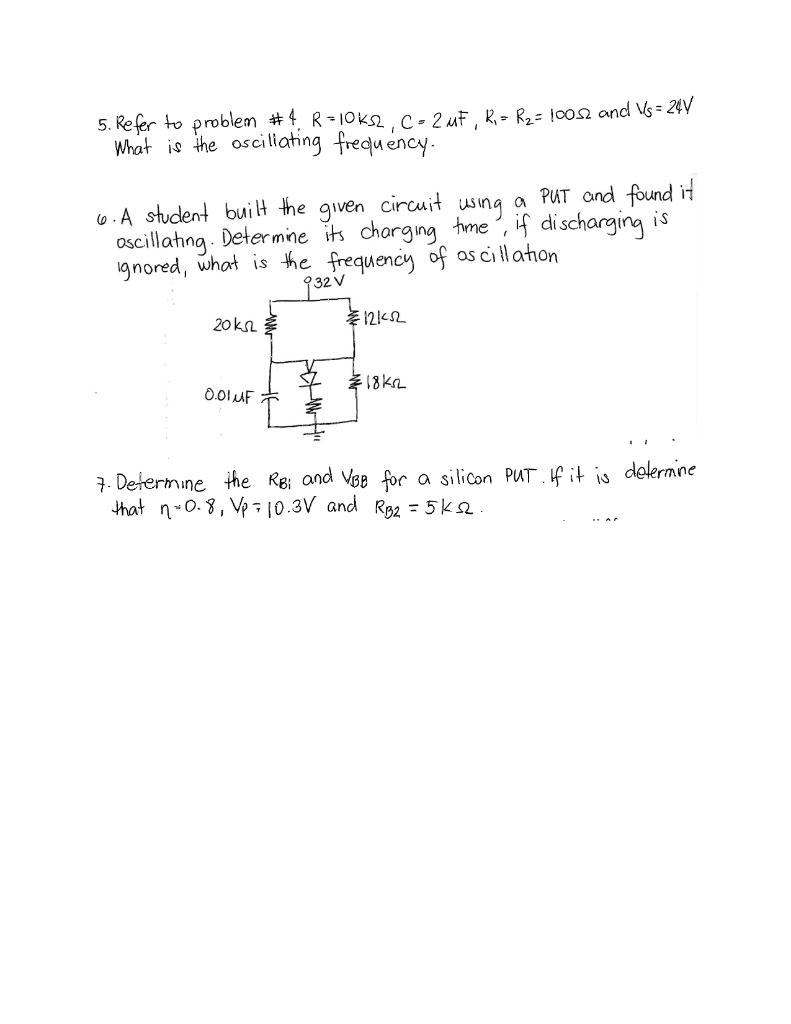 5. Refer to problem #4, R = 10KΩ, C = 2 uF, R₁ = R₂ = 100Ω and Vs = 24V
What is the oscillating frequency.
6. A student built the given circuit using a PUT and found it
oscillating. Determine its charging time, if discharging is
ignored, what is the frequency of oscillation
32V
20KΩ
12KΩ
0.01uF
18KΩ
7. Determine the RB1 and VBB for a silicon PUT. If it is determine
that η = 0.8, Vp = 10.3V and RB2 = 5KΩ.